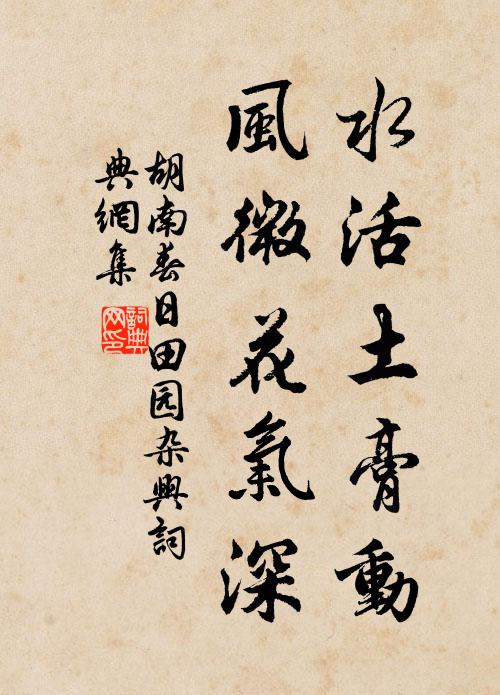 水活土膏動
風微花氣深
胡南春日田园杂興詞
典網集
詞典网印